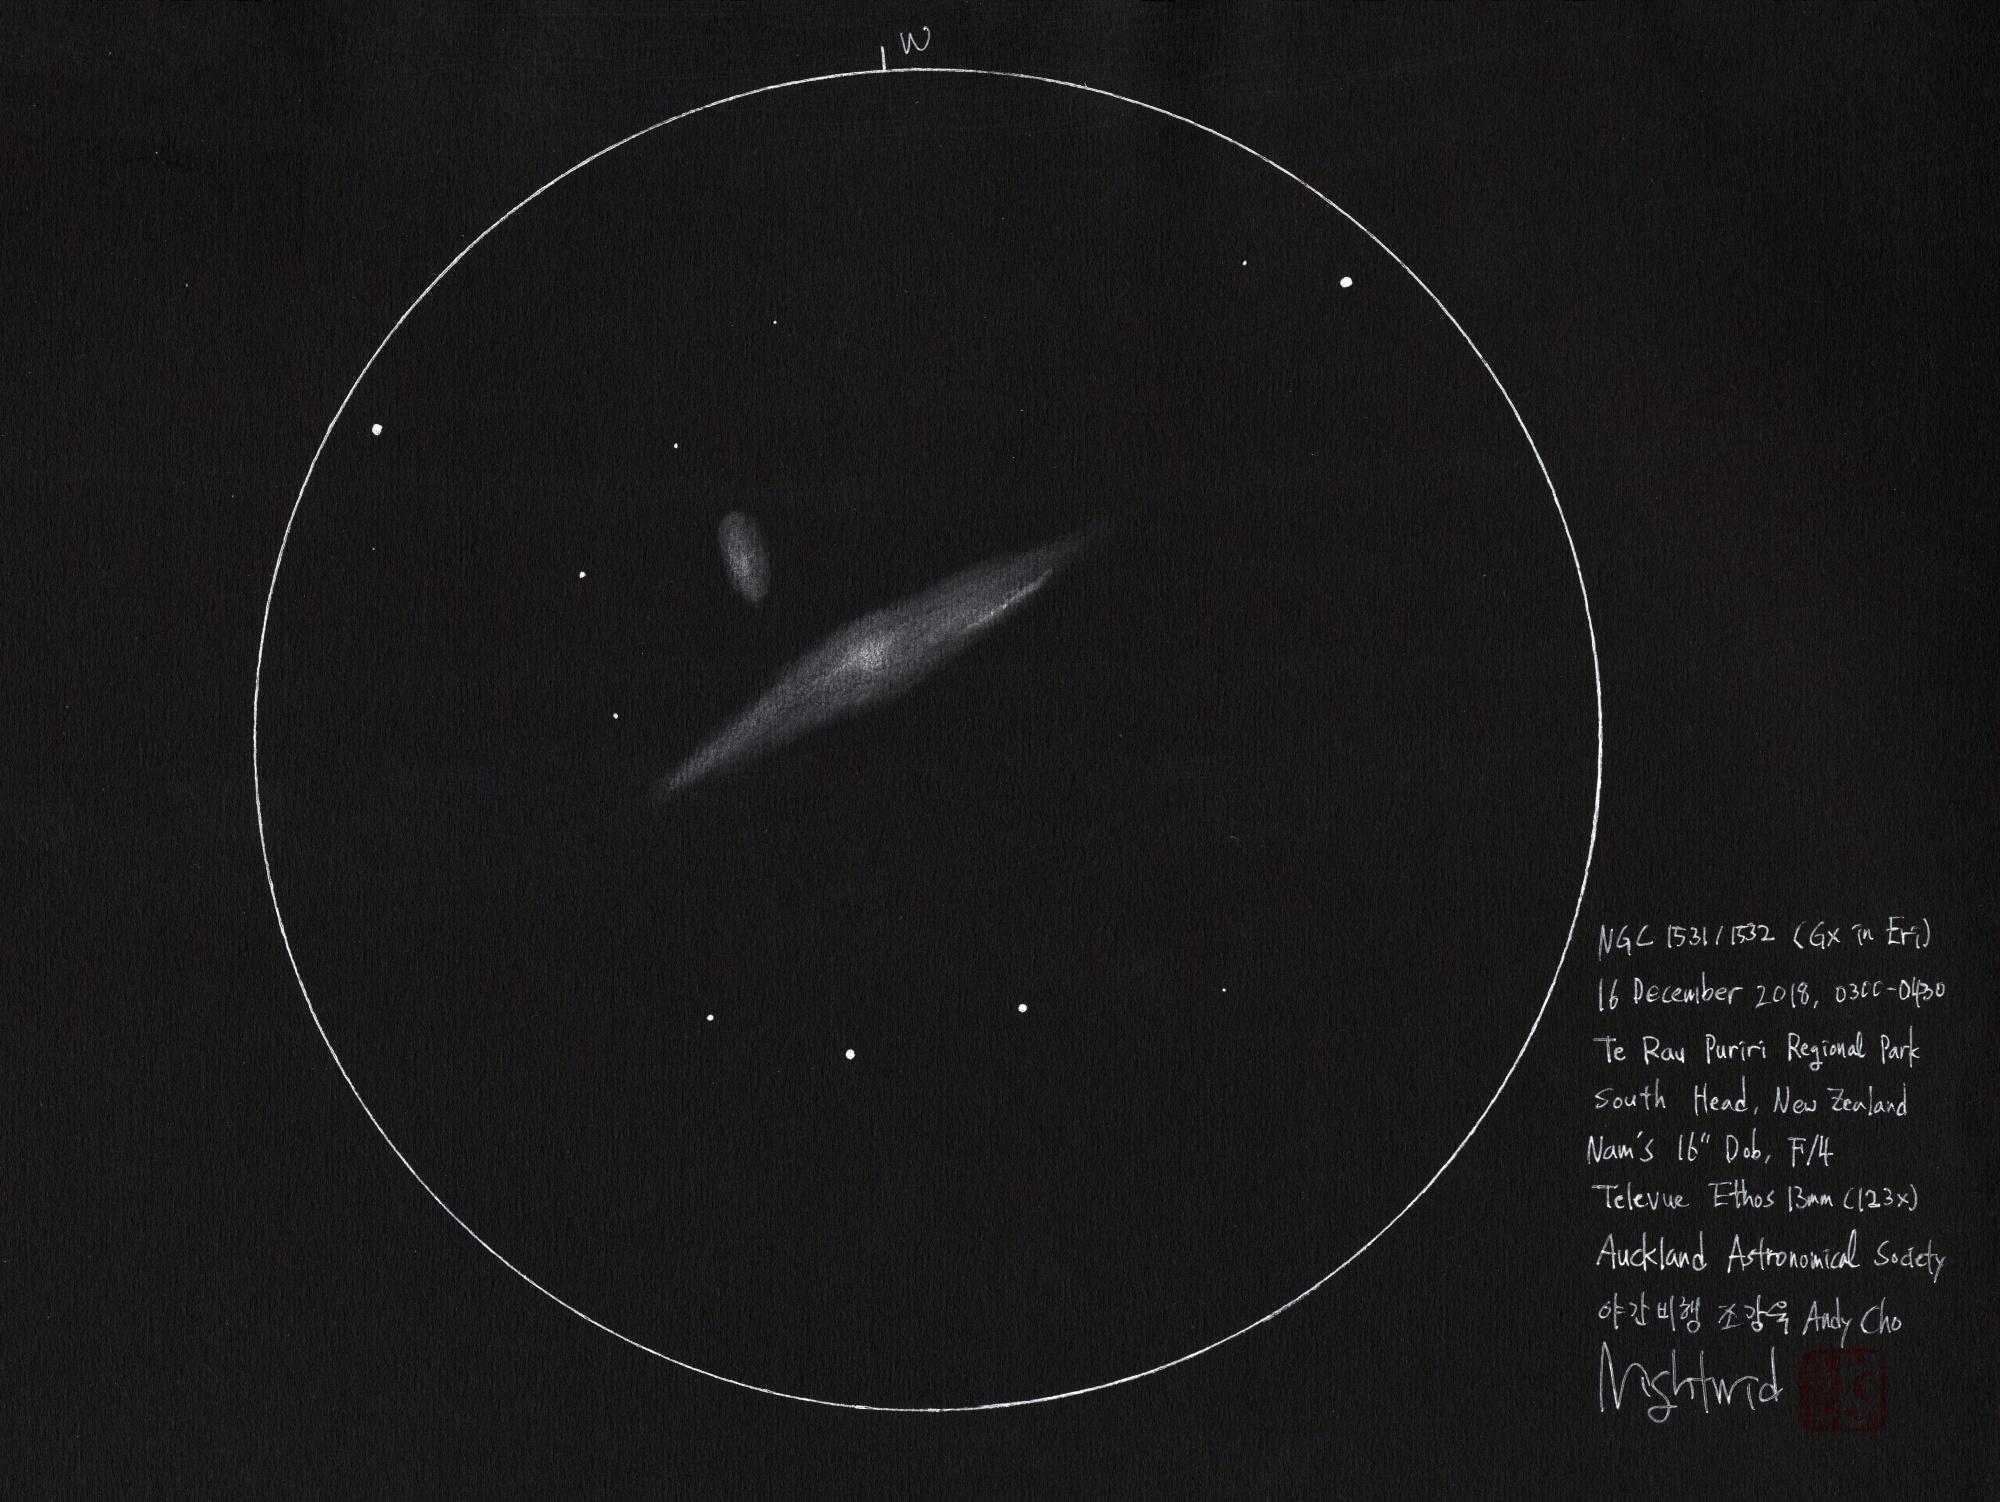 W
NGC 1531/1532 (Gx in Eri)
16 December 2018, 0300-0430
Te Rau Puriri Regional Park
South Head, New Zealand
Nam's 16" Dob, F/4
Televue Ethos 13mm (123x)
Auckland Astronomical Society
야간비행 조강욱 Andy Cho
Nightwid